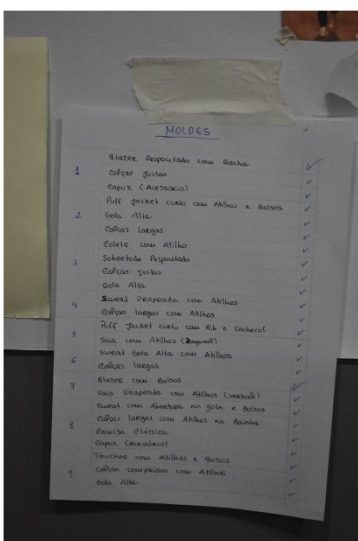 MOLDES
Blazer Pespontado com Racha
1 Calças Justas
Capuz (Acessório)
Puff Jacket curto com Atilhos e Bolsos
2 Gola Alta
Calças Largas
Colete com Atilho
3 Sobretudo Pespontado
Calças Justas
Gola Alta
Sweat Drapeada com Atilhos
4 Calças largas com Atilhos
Puff Jacket curto com Rib e Cachecol
5 Saia com Atilhos
6 Sweat Gola Alta com Atilhos
Calças largas
7 Blazer com Bolsos
Saia Drapeada com Atilhos
Sweat com Abertura na gola e Bolsos
8 Calças largas com Atilhos na Bainha
Camisa Clássica
Capuz (Acessório)
com Atilhos e Bolsos
9 Calças compridas com Atilhos
Gola Alta